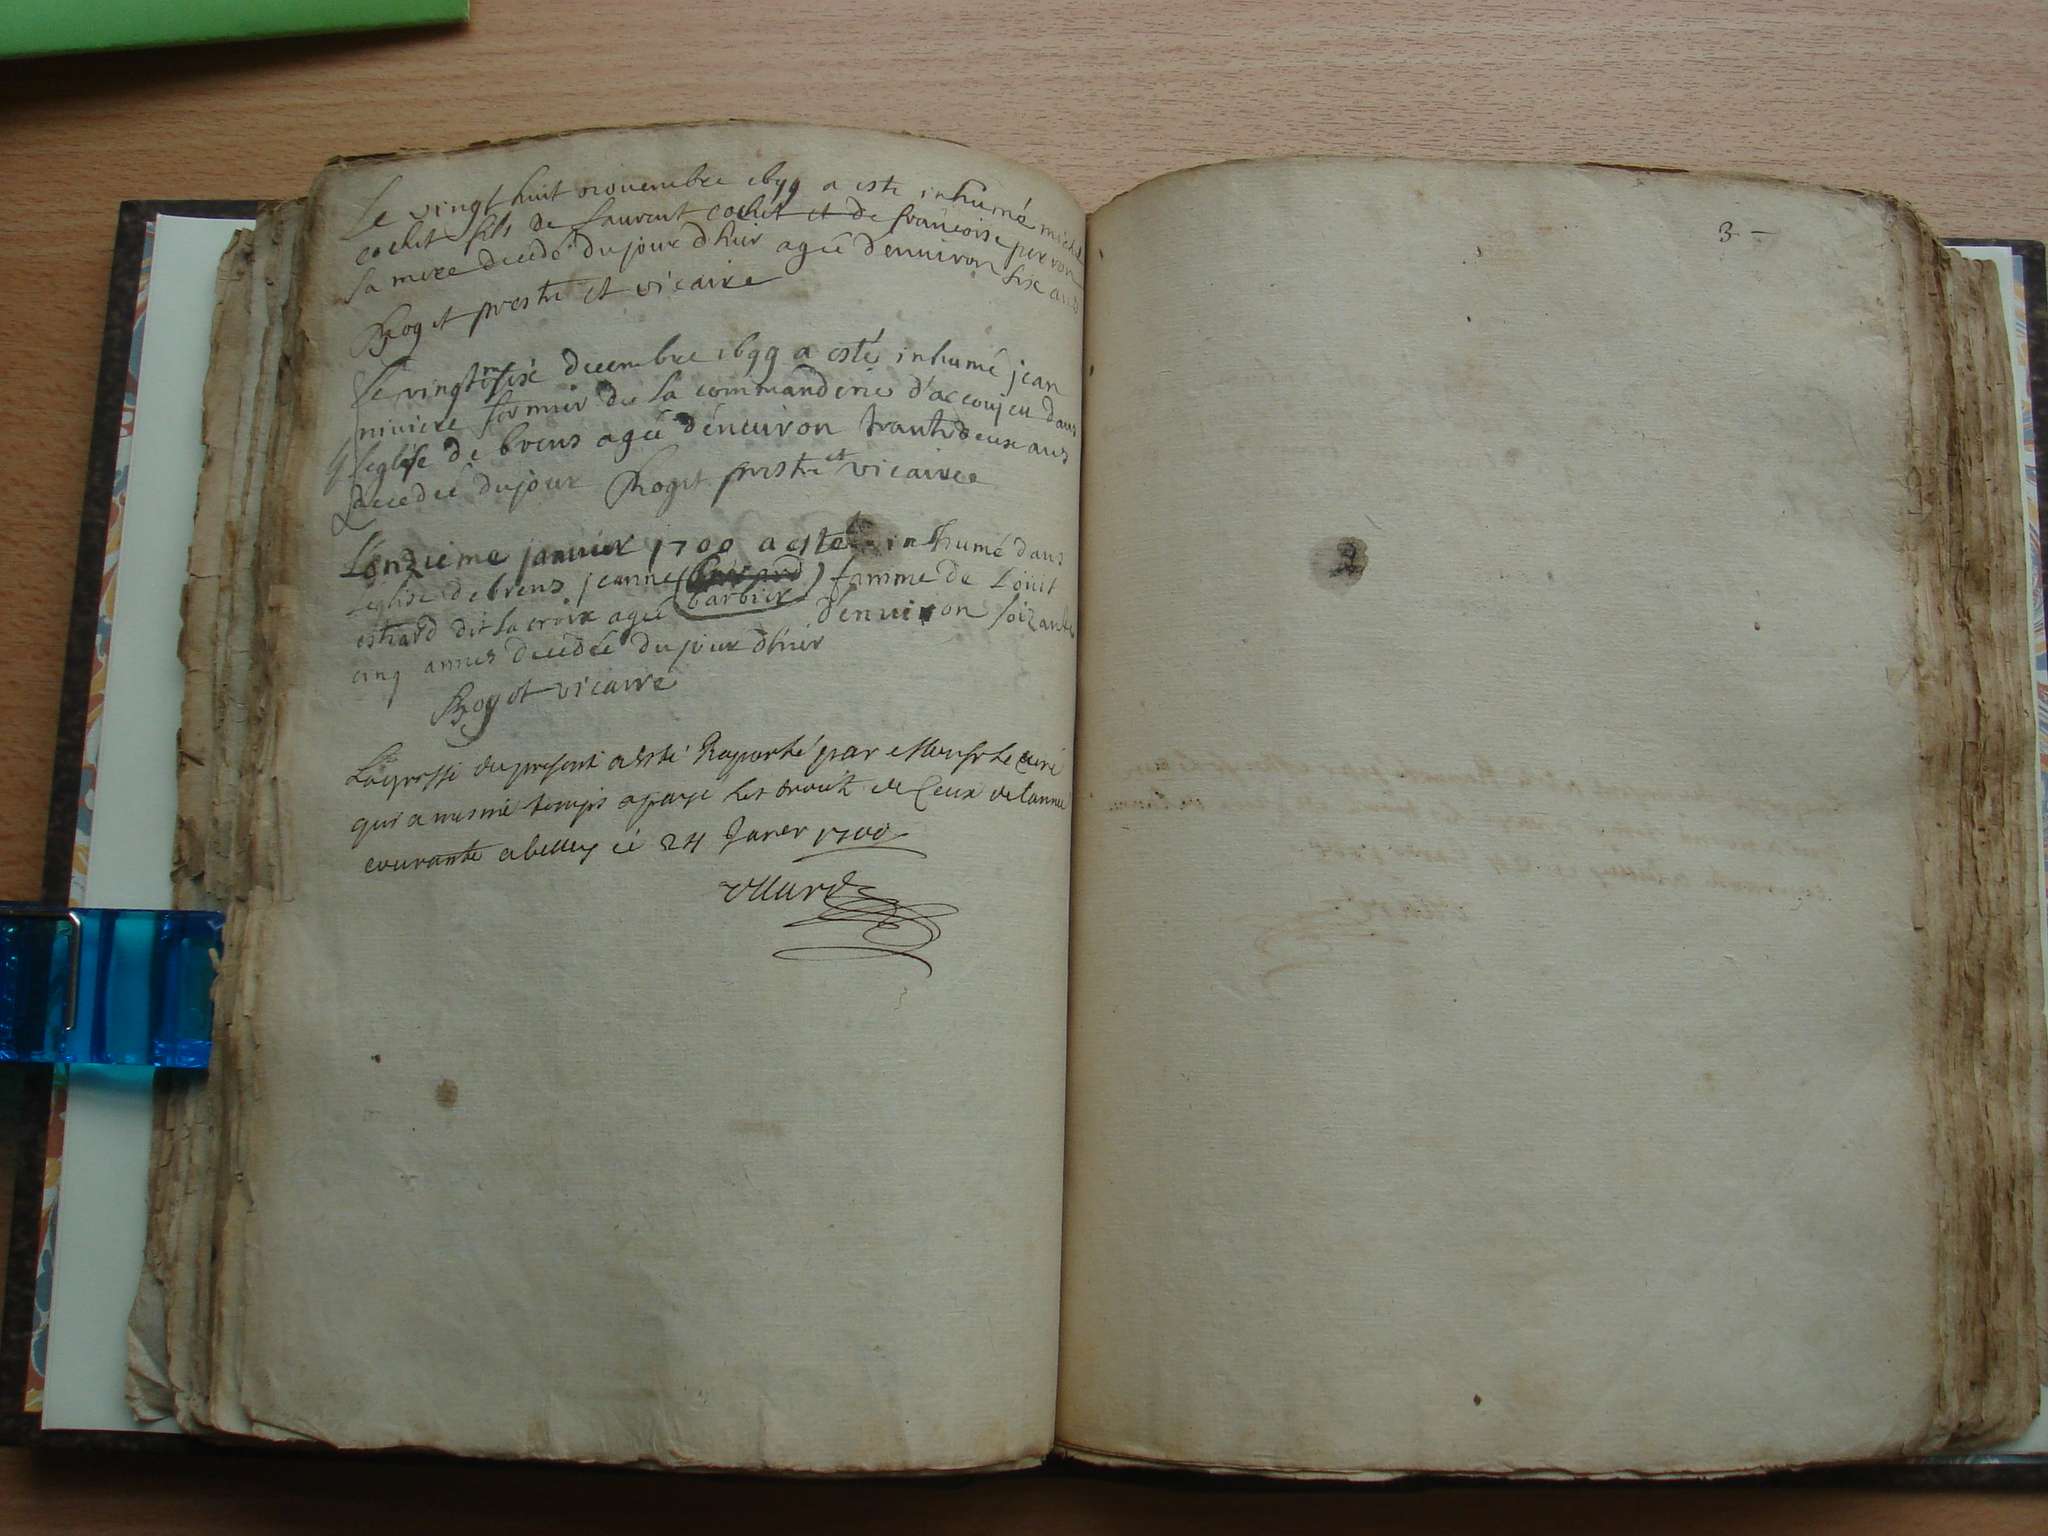 Le vingt huit novembre 1699 a este inhumé miche
cochet fils de Laurent cochet et de francoise perron
sa mere decedé du jour dhier agée denuiron six ans
Roget prestre et vicaire
Le vingt sixe decembre 1699 a esté inhumé jean
niviere fermier de la commanderie d'accoujeu dans
leglise de brens agée d'enuiron trante deux ans
decedée du jour Roget prestre et vicaire
L'onzieme janvier 1700 a esté inhumé dans
leglise de brens jeanne famme de Loüit
barbier
estiard dit la croix agée d'enuiron soizante
cinq annes decedée du jour dhier
Roget vicaire
La grosse du present a esté Raporté par Monsr le curé
qui a mesme temps a payé les droits de Ceux de lannee
courante a belley ce 24 Janer 1700
3 -
2